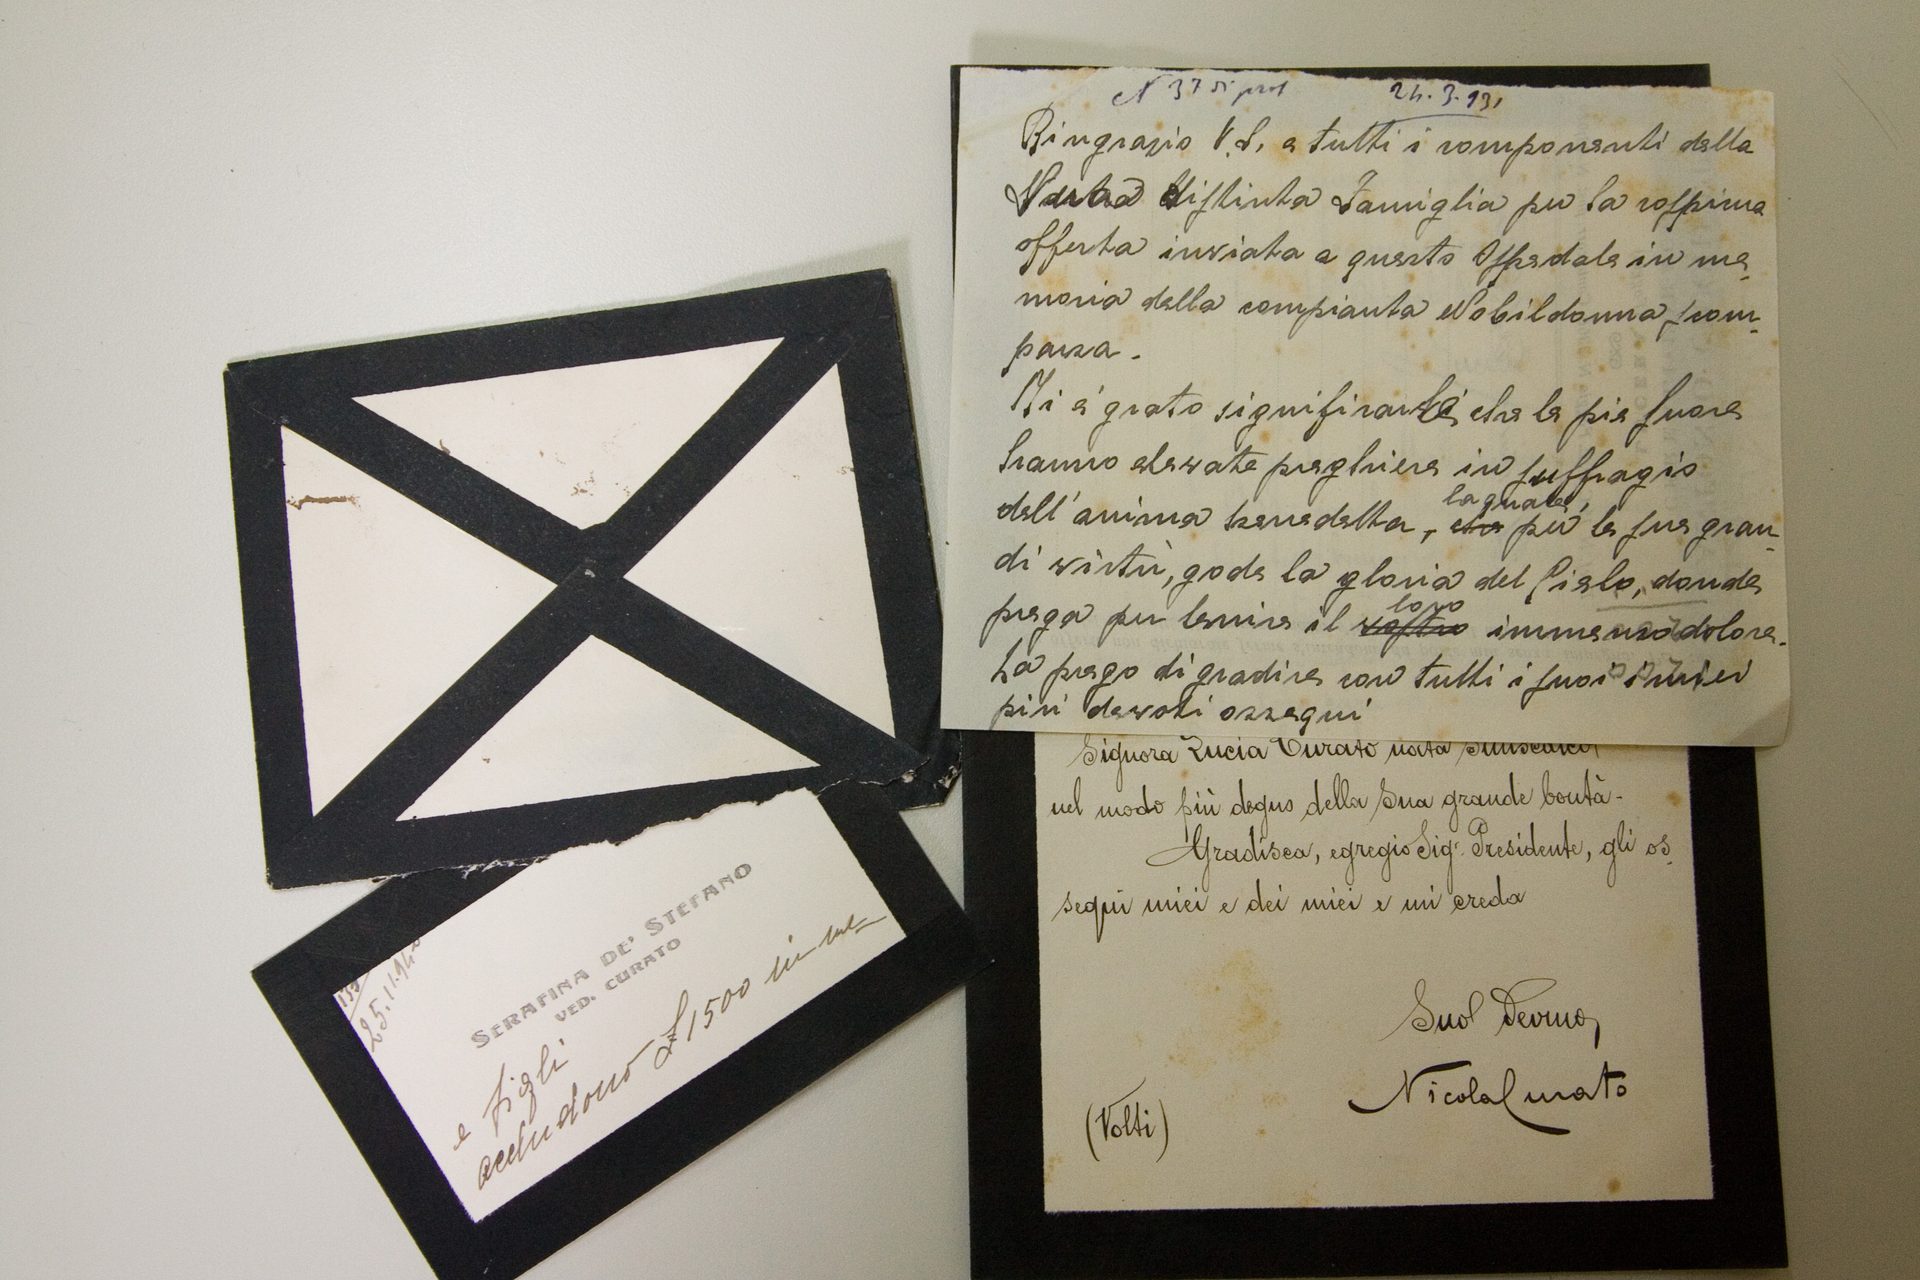 N 37 di prot 24.3.931
Ringrazio V.S. e tutti i componenti della
distinta Famiglia per la cospicua
offerta inviata a questo Ospedale in me-
moria della compianta Nobildonna scom-
parsa.
Mi è grato significarLe che le pie Suore
hanno elevate preghiere in suffragio
la quale,
dell'anima benedetta, che per le sue gran-
di virtù, gode la gloria del Cielo, donde
loro
prega per lenire il vostro immenso dolore.
La prego di gradire con tutti i suoi i miei
più devoti ossequi
Signora Lucia Curato nata Siniscalco
nel modo più degno della Sua grande bontà-
Gradisca, egregio Sig. Presidente, gli os-
sequi miei e dei miei e mi creda
Suo Devmo,
Nicola Curato
(Volti)
25.11.940
SERAFINA DE' STEFANO
VED. CURATO
e figli
accludono £ 1500 in me-